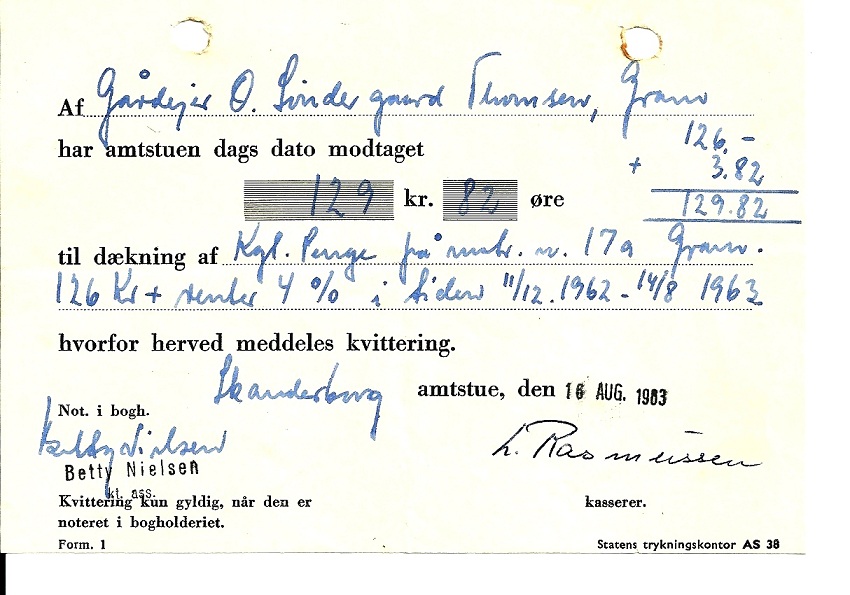 Af Gårdejer O. Søndergaard Thomsen, Gram
har amtstuen dags dato modtaget
126.-
+ 3.82
129 kr. 82 øre 129.82
til dækning af Kgl. Penge på matr. nr. 17a Gram.
126 Kr + renter 4 % i tiden 11/12.1962 - 14/8 1963
hvorfor herved meddeles kvittering.
Skanderborg amtstue, den 16 AUG. 1963
Not. i bogh.
Betty Nielsen L. Rasmussen
Betty Nielsen
kt. ass.
Kvittering kun gyldig, når den er kasserer.
noteret i bogholderiet.
Form. 1 Statens trykningskontor AS 38